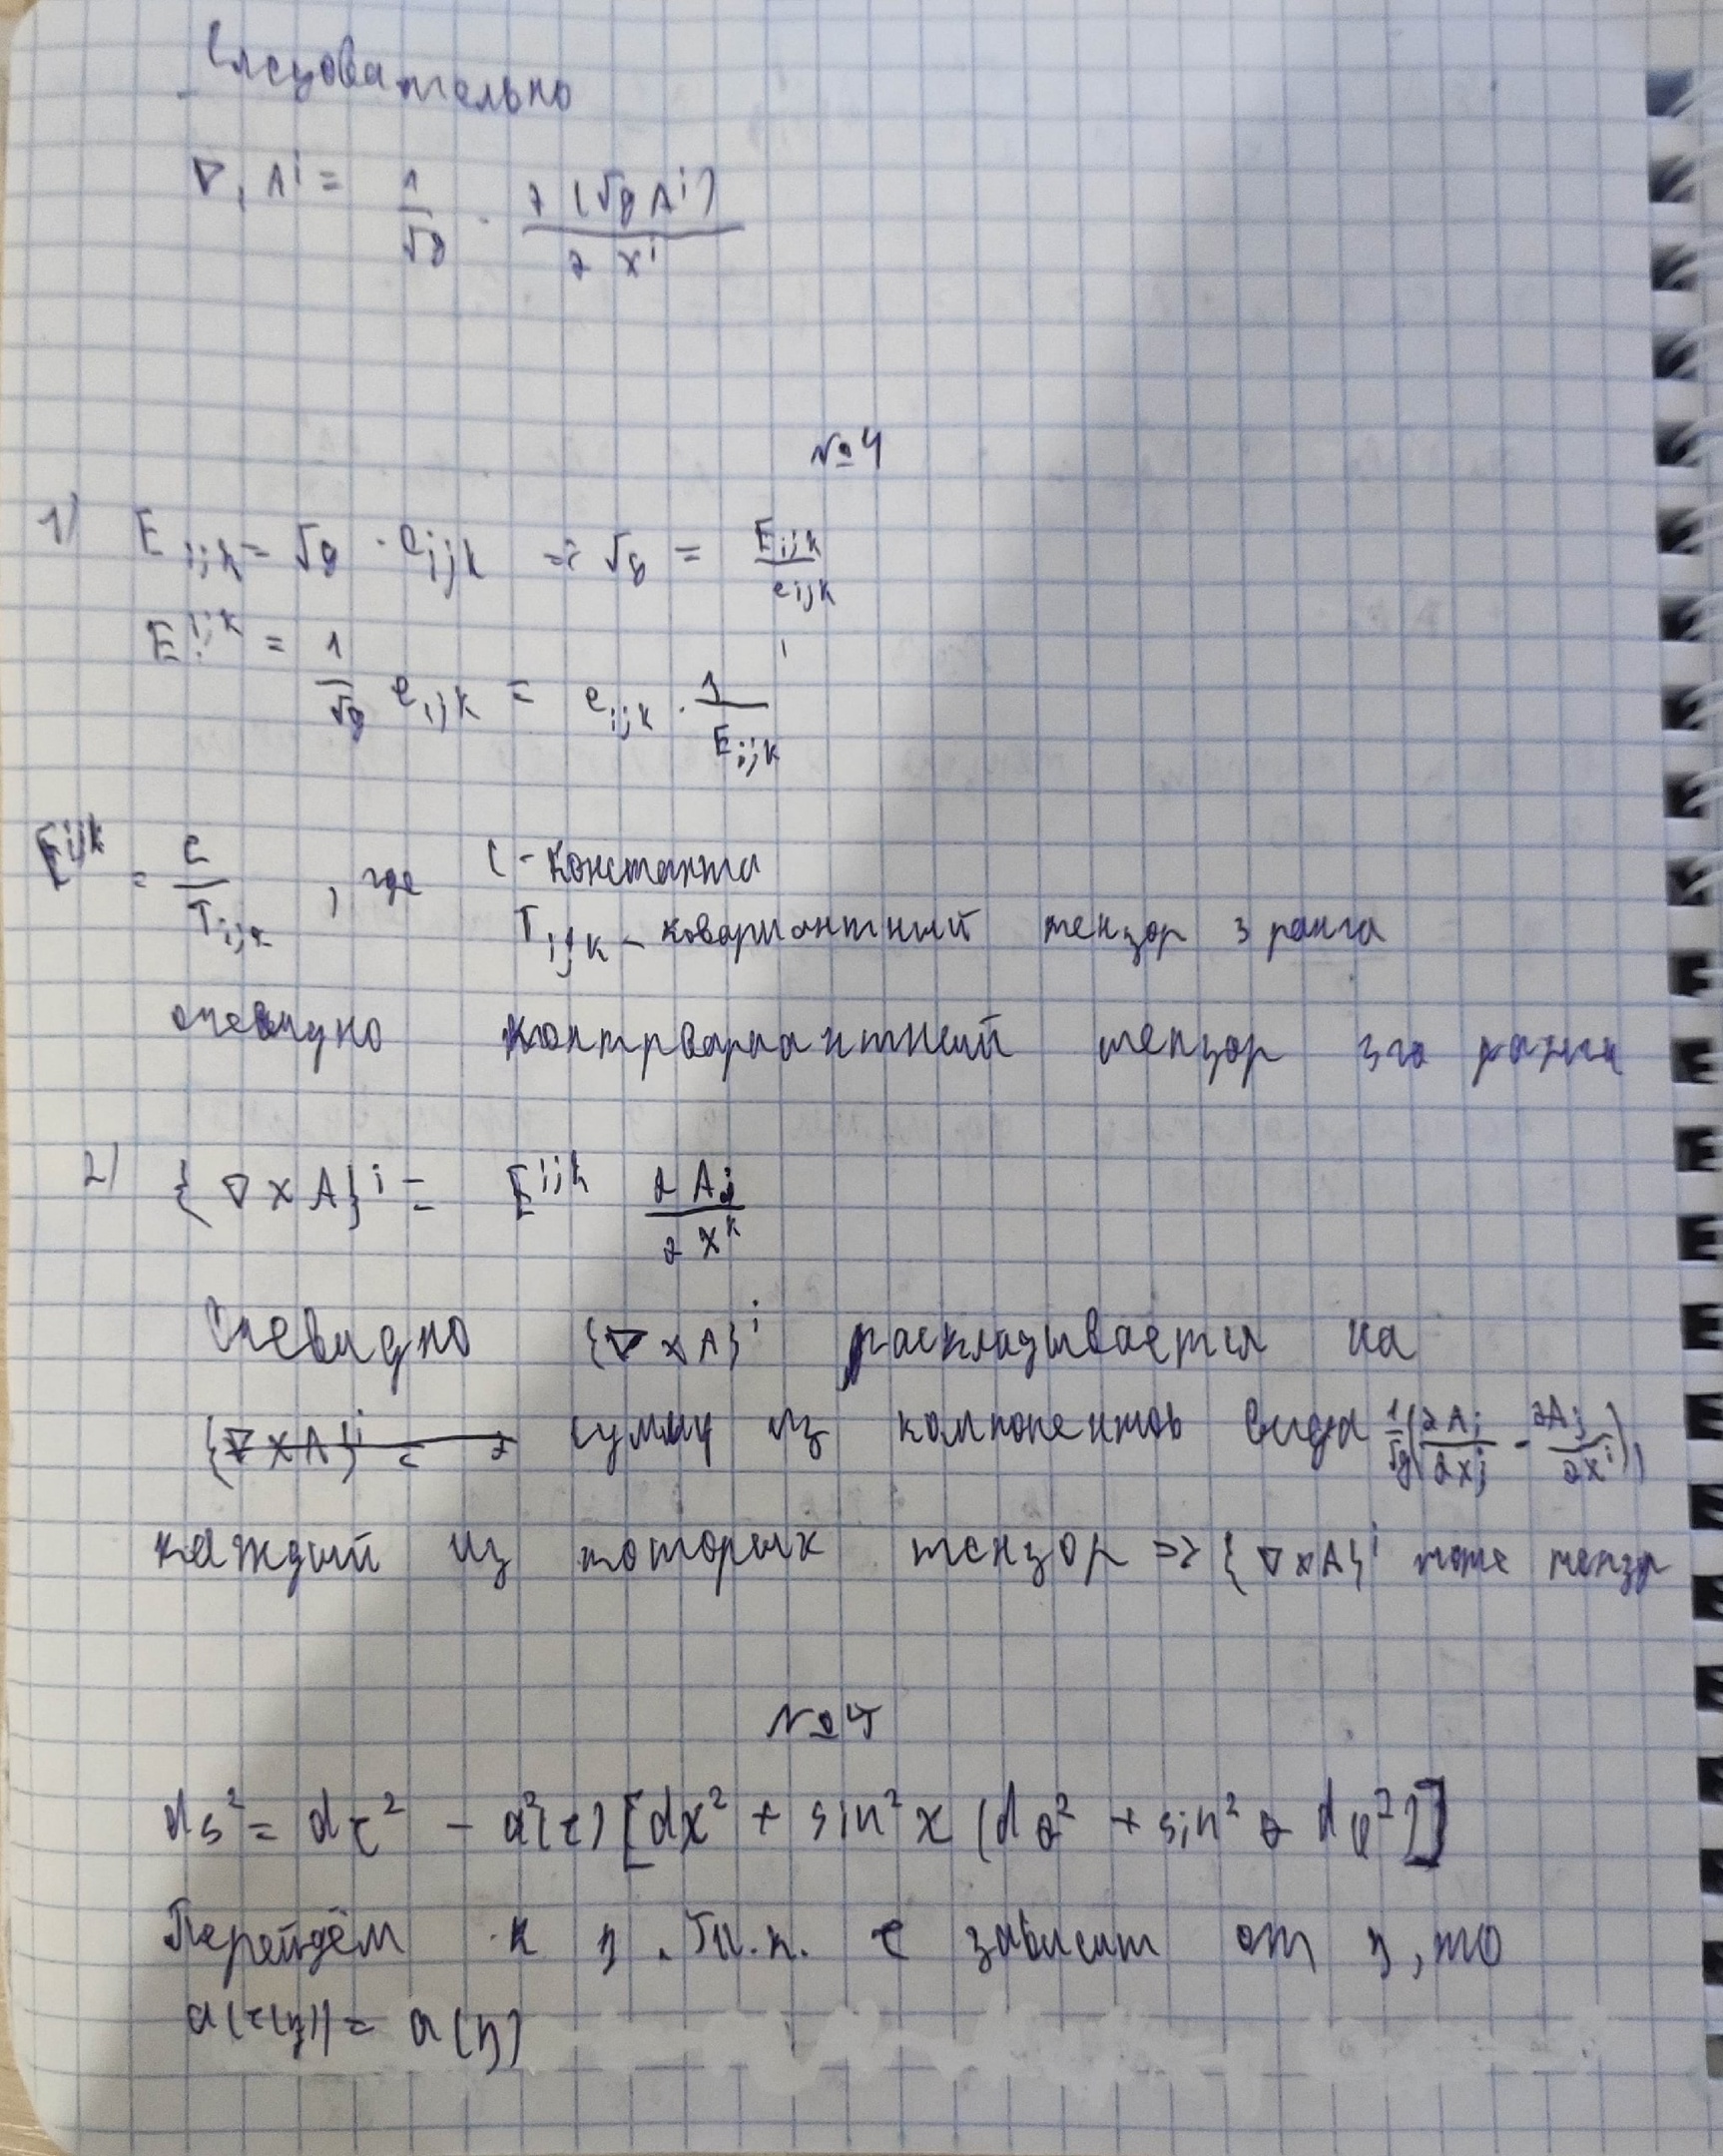 Следовательно
∇ᵢ Aⁱ = 1/√g · ∂(√g Aⁱ)/∂xⁱ
№4
1) E_ijk = √g · e_ijk => √g = E_ijk/e_ijk
E^ijk = 1/√g e_ijk = e_ijk · 1/E_ijk
E^ijk = c/T_ijk , где C - константа
T_ijk - ковариантный тензор 3 ранга
очевидно контрвариантный тензор 3го ранга
2) {∇ × A}ⁱ = E^ijk ∂A_j/∂x^k
Очевидно {∇ × A}ⁱ раскладывается на
{∇ × A}ⁱ = сумму из компонентов вида 1/√g (∂A_i/∂x^j - ∂A_j/∂x^i),
каждый из которых тензор => {∇ × A}ⁱ тоже тензор
ds² = dτ² - a²(τ) [dχ² + sin²χ (dθ² + sin²θ dφ²)]
Перейдём к η. Т.к. τ зависит от η, то
a(τ(η)) = a(η)